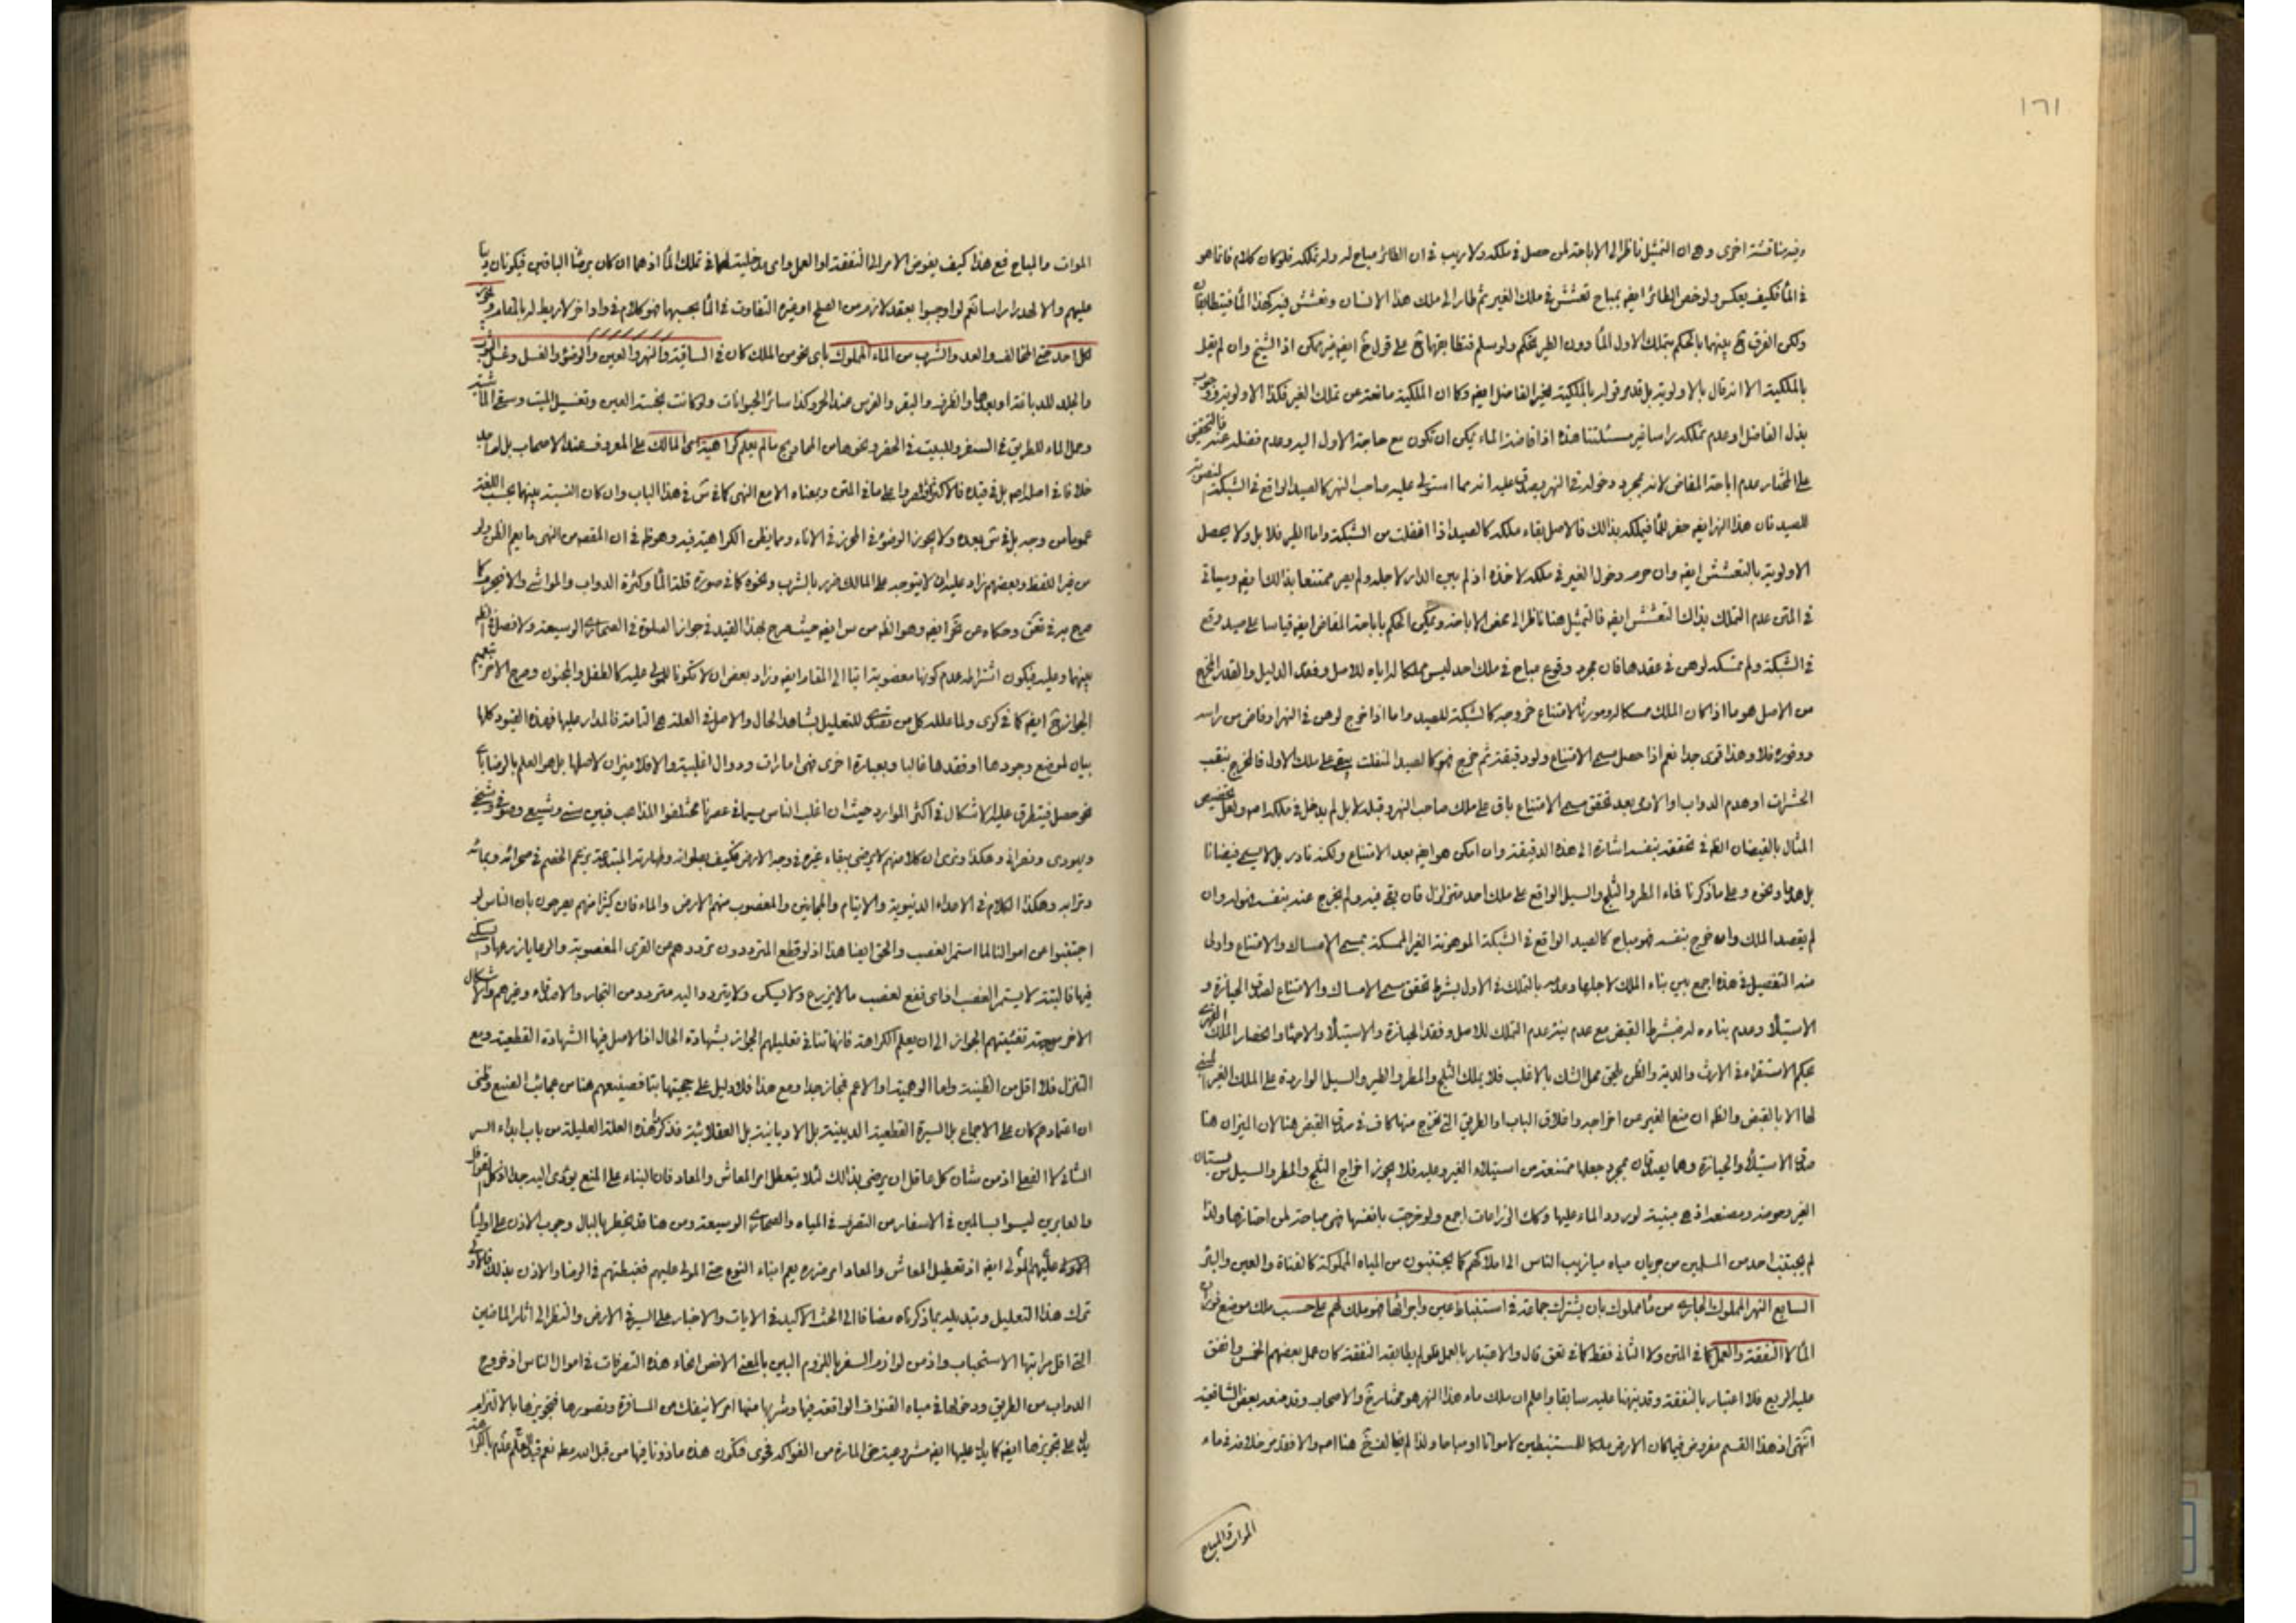 ١٦١
وفيه مناقشة اخرى وهى ان التمثيل ناظر الى الاباحة لمن حصل فى ملكه ولا ريب فى ان الطائر مباح له وله تملكه فلو كان كلام فانما هو
فى الماء فكيف يعكس ولو خص الطائر ايضا بمباح تعشش فى ملك الغير ثم طار الى ملك هذا الانسان وتعشش فيه كهذا الماء فيتطابقان
ولكن الفرق ح بينهما بالحكم بتملك الاول الماء دون الطير تحكم ولو سلم فتطابقهما ح على قول خ ايضا غير ممكن اذ الشيخ وان لم يقل
بالملكية الا انه قال بالاولوية بل قدمر قوله بالملكية لغير الفاضل ايضا وكما ان الملكية مانعة عن تملك الغير فكذا الاولوية ووجوب
بذل الفاضل او عدم تملكه راسا غير مسئلتنا هذه اذ افاضة الماء يمكن ان تكون مع حاجة الاول اليه وعدم فضله عنه فالتحقيق
على المختار عدم اباحة المفاض لانه بمجرد دخوله فى النهر يصدق عليه انه مما استولى عليه صاحب النهر كالصيد الواقع فى الشبكة المنصوبة
للصيد فان هذا النهر ايضا حفر للماء فيملكه بذالك فالاصل بقاء ملكه كالصيد اذا افلت من الشبكة واما الطير فلا بل ولا يحصل
الاولوية بالتعشش ايضا وان حرم دخول الغير فى ملكه لاخذه اذ لم يبن الدار لاجله ولم يصر ممتنعا بذالك ايضا وسياتى
فى المتن عدم التملك بذاك التعشش ايضا فالتمثيل هنا ناظر الى محض الاباحة ويمكن الحكم باباحة المفاض ايضا قياسا على صيد وقع
فى الشبكة ولم تمسكه لوهن فى عقدها فان مجرد وقوع مباح فى ملك احد ليس مملكا له اياه للاصل وفقد الدليل والقدر المخرج
من الاصل هو ما اذا كان الملك ممسكا له ومورثا لامتناع خروجه كالشبكة للصيد واما اذا خرج لوهن فى النهر او فاض من راسه
ووفوره فلا وهذا قوى جدا نعم اذا حصل مسمى الامتناع ولو دقيقة ثم خرج فهو كالصيد المنفلت يبقى على ملك الاول فالخارج بنقب
الحشرات او هدم الدواب او الادمى بعد تحقق مسمى الامتناع باق على ملك صاحب النهر وقبله لا بل لم يدخل فى ملكه اصلا ولعل تخصيص
المثال بالفيضان الظ فى تحققه بنفسه اشارة الى هذه الدقيقة وان امكن هو ايضا بعد الامتناع ولكنه نادر بل لا يسمى فيضانا
بل هدما ونحوه وعلى ما ذكرنا فماء المطر والثلج والسيل الواقع على ملك احد متزلزل فان بقى فيه ولم يخرج عنه بنفسه فهو له وان
لم يقصد الملك وان خرج بنفسه فهو مباح كالصيد الواقع فى الشبكة الموهونة الغير الممسكة بمسمى الامساك والامتناع واولى
منه التفصيل فى هذه اجمع بين بناء الملك لاجلها وعدمه بالتملك فى الاول بشرط تحقق مسمى الامساك والامتناع لصدق الحيازة و
الاستيلاء وعدم بناءه له فيشترط القبض مع عدم بنيته عدم التملك للاصل وفقد الحيازة والاستيلاء والاحياء وانحصار الملك القهرى
بحكم الاستقراء فى الارث والدية والظن يلحق محل الشك بالاغلب فلا يملك الثلج والمطر والطير والسيل الواردة على الملك الغير المبنى
لها الا بالقبض والظ ان منع الغير من اخراجه واغلاق الباب او الطريق التى تخرج منها كاف فى صدق القبض هنا لان الميزان هنا
صدق الاستيلاء والحيازة وهما يصدقان بمجرد جعلها ممتنعة من استيلاء الغير وعليه فلا يجوز اخراج الثلج والمطر والسيل من بستان
الغير وحوضه ومصنعه اذ هى مبنية لورود الماء عليها وكك الزراعات اجمع ولو خرجت بانفسها فهى مباحة لمن احتازها ولذا
لم يجتنب احد من المسلمين من جريان مياه ميازيب الناس الى املاكهم كما يجتنبون من المياه المملوكة كالقناة والعين والبئر
السابع النهر المملوك الجارى من ماء مملوك بان يشترك جماعة فى استنباط عين واجرائها فهو ملك لهم على حسب ملك موضع فوران
الماء لا النفقة والعمل كما فى المتن ولا الثانى فقط كما فى لعق قال والاعتبار بالعمل فلو لم يطابقه النفقة كان عمل بعضهم الخمس وانفق
عليه الربع فلا اعتبار بالنفقة وقد نبهنا عليه سابقا واعلم ان ملك ماء هذا النهر هو مختار خ والاصحاب وقد منعه بعض الشافعية
انتهى اذ هذا القسم مفروض فيما كان الارض ملكا للمستنبطين لا مواتا او مباحا ولذا لم يخالف خ هنا اصلا والا فقد مر خلافه فى ماء
الموات والمباح
الموات والمباح فمع هذا كيف يفوض الامر الى النفقة او العمل واى مدخلية لهما فى تملك الماء اذ هما ان كان برضا الباقين فيكونان دينا
عليهم والا لهدر راسا نعم لو اوجبوا بعقد لازم من الصلح او غيره التفاوت فى الماء بحسبهما فهو كلام فى واد اخر لا ربط له بالمقام ويجوز
لكل احد حتى المخالف والعد والشرب من الماء المملوك بأى نحو من الملك كان فى الساقية والنهر والعين والوضوء والغسل وغسل الثوب
والجلد للدباغة او بعدها والظرف والبقر والفرس عند الحر وكذا سائر الحيوانات ولو كانت نجسة العين وتغسيل الميت وسقى الماشية
وحمل الماء للطريق فى السفر وللبيت فى الحضر ونحوها من المحاويج ما لم يعلم كراهية من المالك على المعروف عند الاصحاب بل لم اجد
خلافا فى اصله اصلا بل فى قيده فالاكثر اقتصروا على ما فى المتن وبمعناه الا مع النهى كما فى س فى هذا الباب وان كان النسبة بينهما بحسب اللغة
عموما من وجه بل فى س بعده ولا يجوز الوضوء فى المحرز فى الاناء ومما يظن الكراهية فيه وهو ظ فى ان المقصد من النهى ما يعم الظن ولو
من غير اللفظ وبعضهم زاد عليه ان لا يتوجه على المالك ضرر بالشرب ونحوه كما فى صورة قلة الماء وكثرة الدواب والمواشى والا فيحرم كما
صرح به فى تعق وحكاه عن ئر ايضا وهو الظ من س ايضا حيث صرح بهذا القيد فى جواز الصلوة فى الصحارى الوسيعة ولا فصل فى الظ
بينهما وعليه فيكون اشتراط عدم كونها مغصوبة اتيا الى المقام ايضا وزاد بعض ان لا تكونا للمولى عليه كالطفل والمجنون وصرح الاخر بتعميم
الجواز ح ايضا كما فى كرى ولما علله كل من تصدى للتعليل بشاهد الحال والاصل فى العلة هى التامة فالمدار عليها فهذه القيود كلها
بيان لموضع وجودها او فقدها غالبا وبعبارة اخرى فهى امارات ودوال اغلبية والا فلا ميزان لاصلها بل هو العلم بالرضا بأى
نحو حصل فيتطرق عليه الاشكال فى اكثر الموارد حيث ان اغلب الناس سيما فى عصرنا مختلفوا المذاهب فبين سنى وشيعى وصوفى وشيخى
ويهودى ونصرانى وهكذا ونرى ان كلا منهم لا يرضى ببقاء غيره فى وجه الارض فكيف بصلوته وطهارته المبتدعة بزعم الخصم فى صحرائه وبمائه
وترابه وهكذا الكلام فى الاعداء الدنيوية والايتام والمجانين والمغصوب منهم الارض والماء فان كثيرا منهم يصرحون بان الناس لو
اجتنبوا عن اموالنا لما استمر الغصب والحق ايضا هذا اذ لو قطع المترددون ترددهم عن القرى المغصوبة والرعايا زرعها وسكنى
فيها فالبتة لا يستمر الغصب اذ اى نفع لغصب ما لا يزرع ولا يسكن ولا يتردد اليه متردد من التجار والاصدقاء وغيرهم والاشكال
الاخر من جهة تغييتهم الجواز الى ان يعلم الكراهة فانها تنافى تعليلهم الجواز بشهادة الحال اذ الاصل فيها الشهادة القطعية ومع
التنزل فلا اقل من الظنية واما الوهمية او الاعم فمجاز جدا ومع هذا فلا دليل على حجيتها بتا فصنيعهم هنا من عجائب الصنيع وظنى
ان اعتمادهم كان على الاجماع بل السيرة القطعية الدينية بل الاديانية بل العقلائية فذكر هذه العلة العليلة من باب ابداء السر
الثانى لا الفعلى اذ من شان كل عاقل ان يرضى بذالك لئلا يتعطل امر المعاش والمعاد فان البناء على المنع يؤدى اليه جدا اذ كل القوافل
والعابرين ليسوا بسالمين فى الاسفار من التصرف فى المياه والصحارى الوسيعة ومن هنا قد يخطر بالبال وجوب الاذن على اولياء
المولى عليهم ايضا اذ تعطيل المعاش والمعاد امر ضرره يعم ابناء النوع حتى المولى عليهم فغبطتهم فى الرضا والاذن بذلك فالاولى
ترك هذا التعليل وتبديله بما ذكرناه مضافا الى الحث الاكيد فى الايات والاخبار على السير فى الارض والنظر الى اثار الماضين
التى اقل مراتبها الاستحباب واذ من لوازم السفر باللزوم البين بالمعنى الاخص انحاء هذه التصرفات فى اموال الناس اذ خروج
الدواب من الطريق ودخولها فى مياه القنوات الواقعة فيها وشربها منها امر لا ينفك عن المسافرة وتصورها فتجويزها بالالتزام
يدل على تجويزها ايضا كما يدل عليها ايضا مشروعية حق المارة من الفواكه فحوى فتكون هذه ماذونا فيها من قبل الله مطلقا نعم قيل